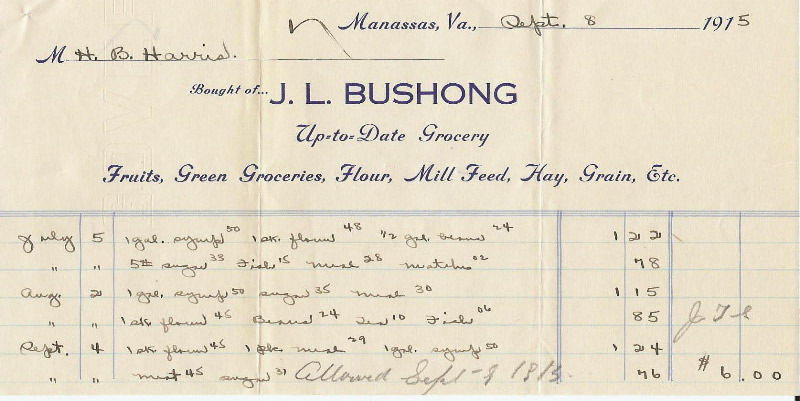 Manassas, Va., Sept. 8 1915
M H. B. Harris.
Bought of... J. L. BUSHONG
Up-to-Date Grocery
Fruits, Green Groceries, Flour, Mill Feed, Hay, Grain, Etc.
July 5 1 gal. syrup 50 1 sk. flour 48 1/2 gal. beans 24 1 22
" " 5# sugar 33 Fish 15 meal 28 matches 02 78
Aug. 2 1 gal. syrup 50 sugar 35 meal 30 1 15
" " 1 sk flour 45 Beans 24 Tea 10 Fish 06 85
Sept. 4 1 sk. flour 45 1 pk. meal 29 1 gal. syrup 50 1 24
" " meat 45 sugar 31 Allowed Sept - 8 1915. 76 $6.00